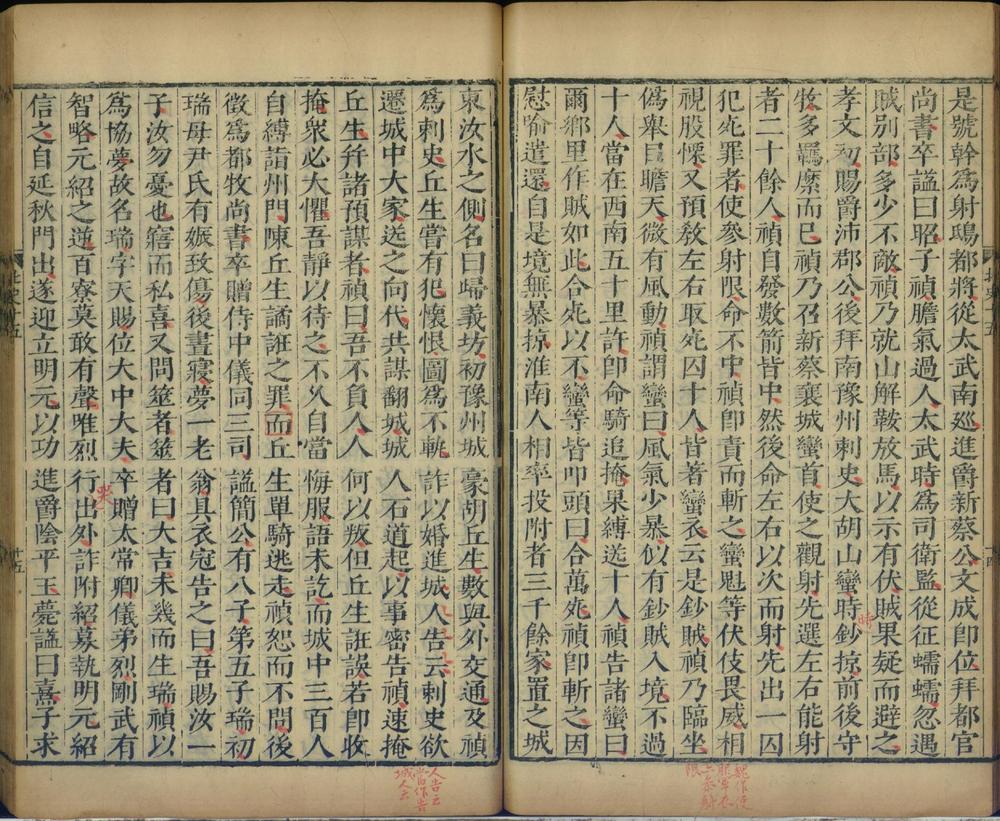 是號幹爲射鴟都將從太武南巡進爵新蔡公文成卽位拜都官
尚書卒謚曰昭子禎膽氣過人太武時爲司衛監從征蠕蠕忽遇
賊别部多少不敵禎乃就山解鞍放馬以示有伏賊果疑而避之
孝文初賜爵沛郡公後拜南豫州刺史大胡山蠻時鈔掠前後守
牧多羈縻而已禎乃召新蔡襄城蠻首使之觀射先選左右能射
者二十餘人禎自發數箭皆中然後命左右以次而射先出一囚
犯死罪者使參射限命不中禎卽責而斬之蠻魁等伏伎畏威相
視股慄又預敎左右取死囚十人皆著蠻衣云是鈔賊禎乃臨坐
僞舉目瞻天微有風動禎謂蠻曰風氣少暴似有鈔賊入境不過
十人當在西南五十里許卽命騎追掩果縛送十人禎告諸蠻曰
爾鄉里作賊如此合死以不蠻等皆叩頭曰合萬死禎卽斬之因
慰喻遣還自是境無暴掠淮南人相率投附者三千餘家置之城
時
魏作使
服軍衣
亦參射
限
北史十五
十四
東汝水之側名曰歸義坊初豫州城豪胡丘生數與外交通及禎
爲刺史丘生嘗有犯懷恨圖爲不軌詐以婚進城人告云刺史欲
遷城中大家送之向代共謀翻城城人石道起以事密告禎速掩
丘生幷諸預謀者禎曰吾不負人人何以叛但丘生誑誤若卽收
掩衆必大懼吾靜以待之不久自當悔服語未訖而城中三百人
自縛詣州門陳丘生譎誑之罪而丘生單騎逃走禎恕而不問後
徵爲都牧尚書卒贈侍中儀同三司謚簡公有八子第五子瑞初
瑞母尹氏有娠致傷後晝寢夢一老翁具衣冠告之曰吾賜汝一
子汝勿憂也寤而私喜又問筮者筮者曰大吉未幾而生瑞禎以
爲協夢故名瑞字天賜位大中大夫卒贈太常卿儀弟烈剛武有
智略元紹之逆百寮莫敢有聲唯烈行出外詐附紹募執明元紹
信之自延秋門出遂迎立明元以功進爵陰平王薨謚曰熹子求
人告云
當作告
城人云
北史十五
十五